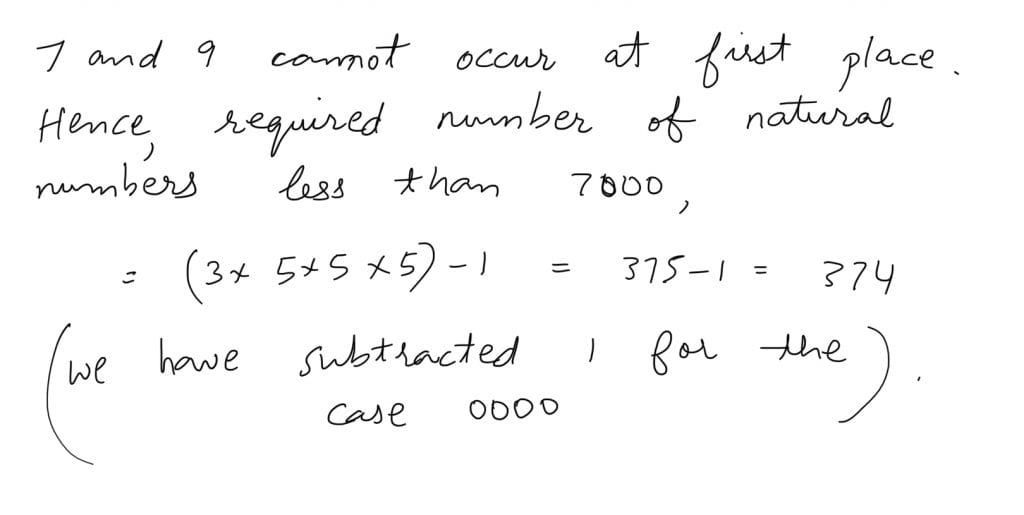 7 and 9 cannot occur at first place.
Hence, required number of natural
numbers less than 7000,
= (3 × 5 × 5 × 5) - 1 = 375 - 1 = 374
(we have subtracted 1 for the
case 0000).